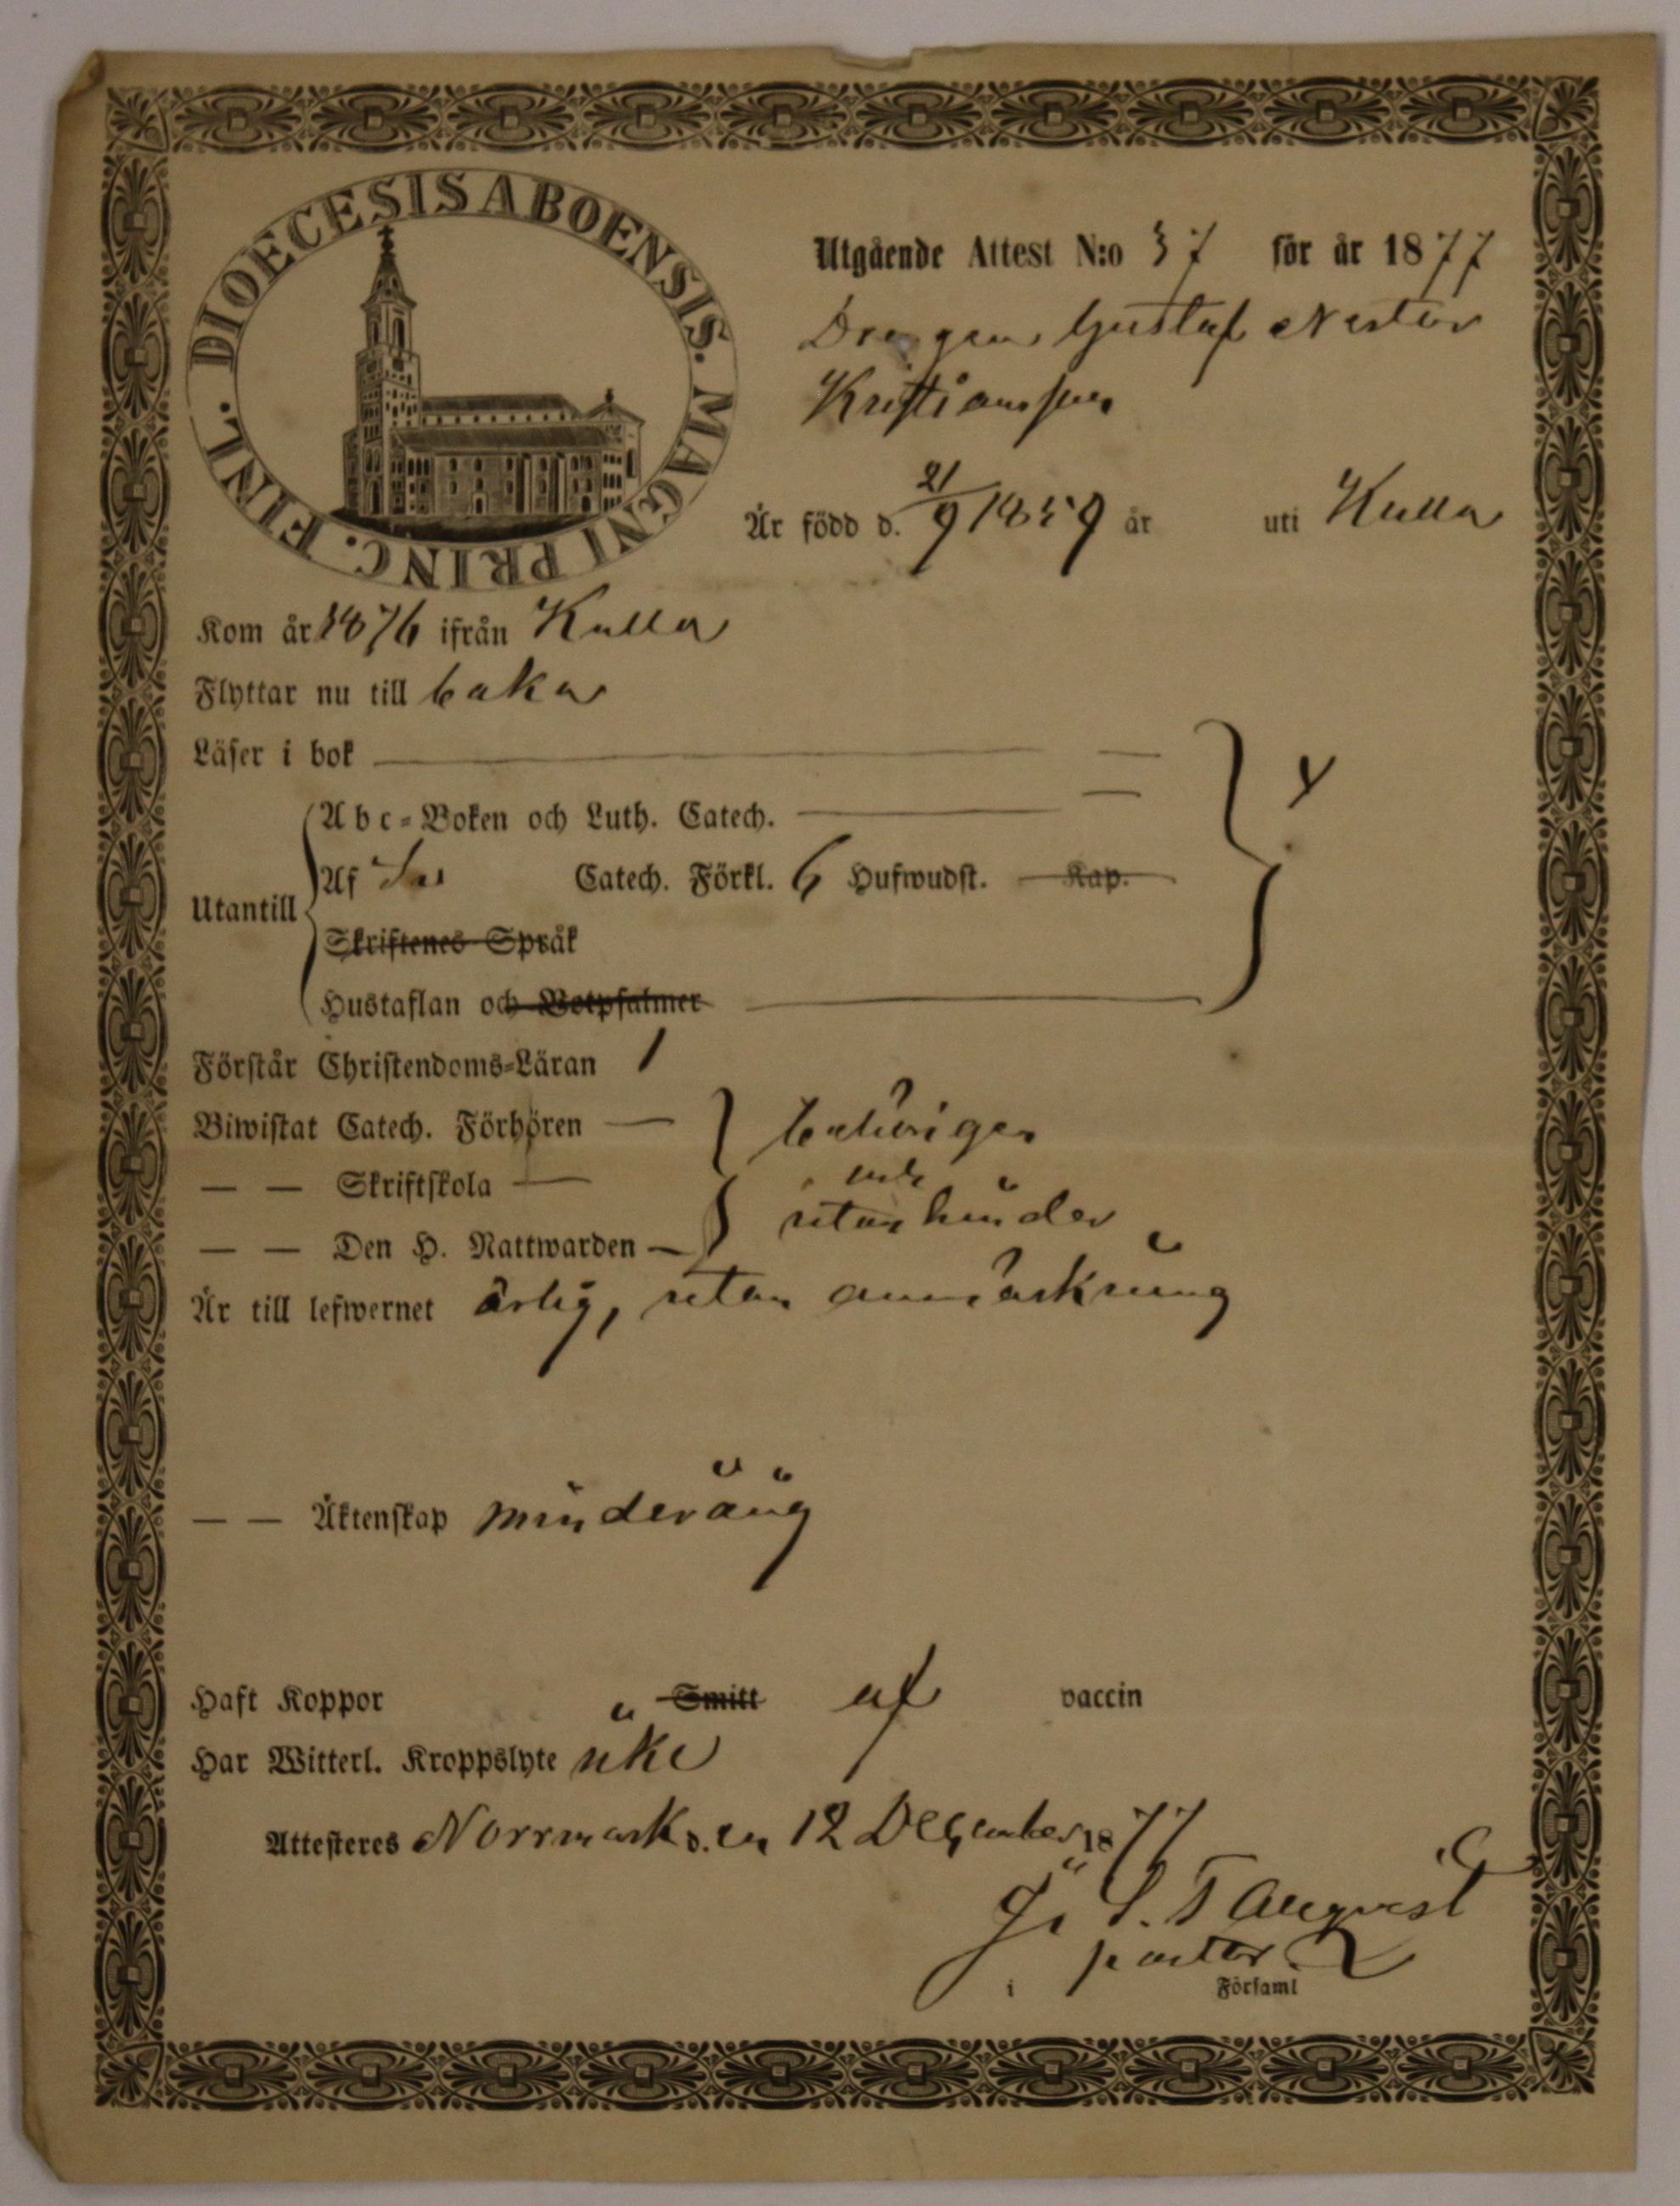 DIOECESIS ABOENSIS. MAGNI PRINC. FINL.
Utgående Attest N:o 37 för år 1877
Drengen Gustaf Nestor
Kristiansson
Är född d. 21/9 1859 år uti Kulla
Kom år 1876 ifrån Kulla
Flyttar nu till baka
Läser i bok
Abc-Boken och Luth. Catech.
Utantill
Af Catech. Förkl. 6 Hufwudst. Kap.
Skriftenes Språk
Hustaflan och Botpsalmer
Förstår Christendoms-Läran 1
Biwistat Catech. Förhören behörigen
— — Skriftskola och
utan hinder
— — Den H. Nattwarden
Är till lefwernet ärlig, utan anmärkning
— — Äktenskap minderårig
Haft Koppor Smitt af vaccin
Har Witterl. Kroppslyte icke
Attesteres Norrmark d. en 12 December 1877
pastor
i Församl